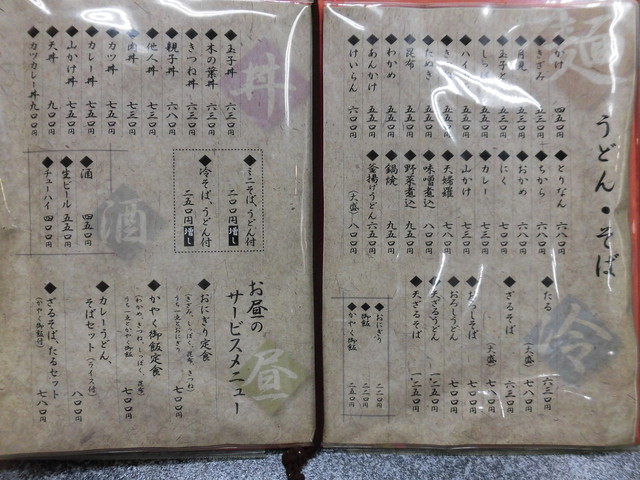 麺
うどん・そば
◆かけ 四五〇円
◆きざみ 五五〇円
◆月見 五五〇円
◆玉子と 五五〇円
◆しっぽ 五五〇円
◆ハイ 五五〇円
◆たぬき 五五〇円
◆昆布 五五〇円
◆わかめ 五五〇円
◆あんかけ 五五〇円
◆けいらん 六〇〇円
◆とりなん 六八〇円
◆ちから 六八〇円
◆おかめ 六八〇円
◆にく 七〇〇円
◆カレー 七三〇円
◆山かけ 七三〇円
◆天婦羅 七〇〇円
◆味噌煮込 八〇〇円
◆野菜煮込 九五〇円
◆鍋焼 九五〇円
◆釜揚げうどん 六五〇円
(大盛) 八〇〇円
冷
◆たる 六三〇円
(大盛) 七八〇円
◆ざるそば 六三〇円
(大盛) 七八〇円
◆おろしそば 七〇〇円
◆おろしうどん 七〇〇円
◆天ざるうどん 一、二五〇円
◆天ざるそば 一、二五〇円
◆おにぎり 二二〇円
◆御飯 二二〇円
◆かやく御飯 二八〇円
丼
◆玉子丼 六三〇円
◆木の葉丼 六三〇円
◆きつね丼 六三〇円
◆親子丼 六八〇円
◆他人丼 七三〇円
◆肉丼 七三〇円
◆カツ丼 七五〇円
◆カレー丼 七五〇円
◆山かけ丼 七五〇円
◆天丼 九〇〇円
◆カツカレー丼 九〇〇円
◆ミニそば、うどん付
二〇〇円増し
◆冷そば、うどん付
二五〇円増し
酒
◆酒 四五〇円
◆生ビール 五五〇円
◆チューハイ 四〇〇円
昼
お昼の
サービスメニュー
◆おにぎり定食
(きざみ、しっぽく、昆布、きつね)
うち一点とおにぎり 七〇〇円
◆かやく御飯定食
(わかめ、きつね、しっぽく、昆布)
うち一点とかやく御飯 七〇〇円
◆カレーうどん、
そばセット(ライス付) 八〇〇円
◆ざるそば、たるセット
(かやく御飯付) 七八〇円